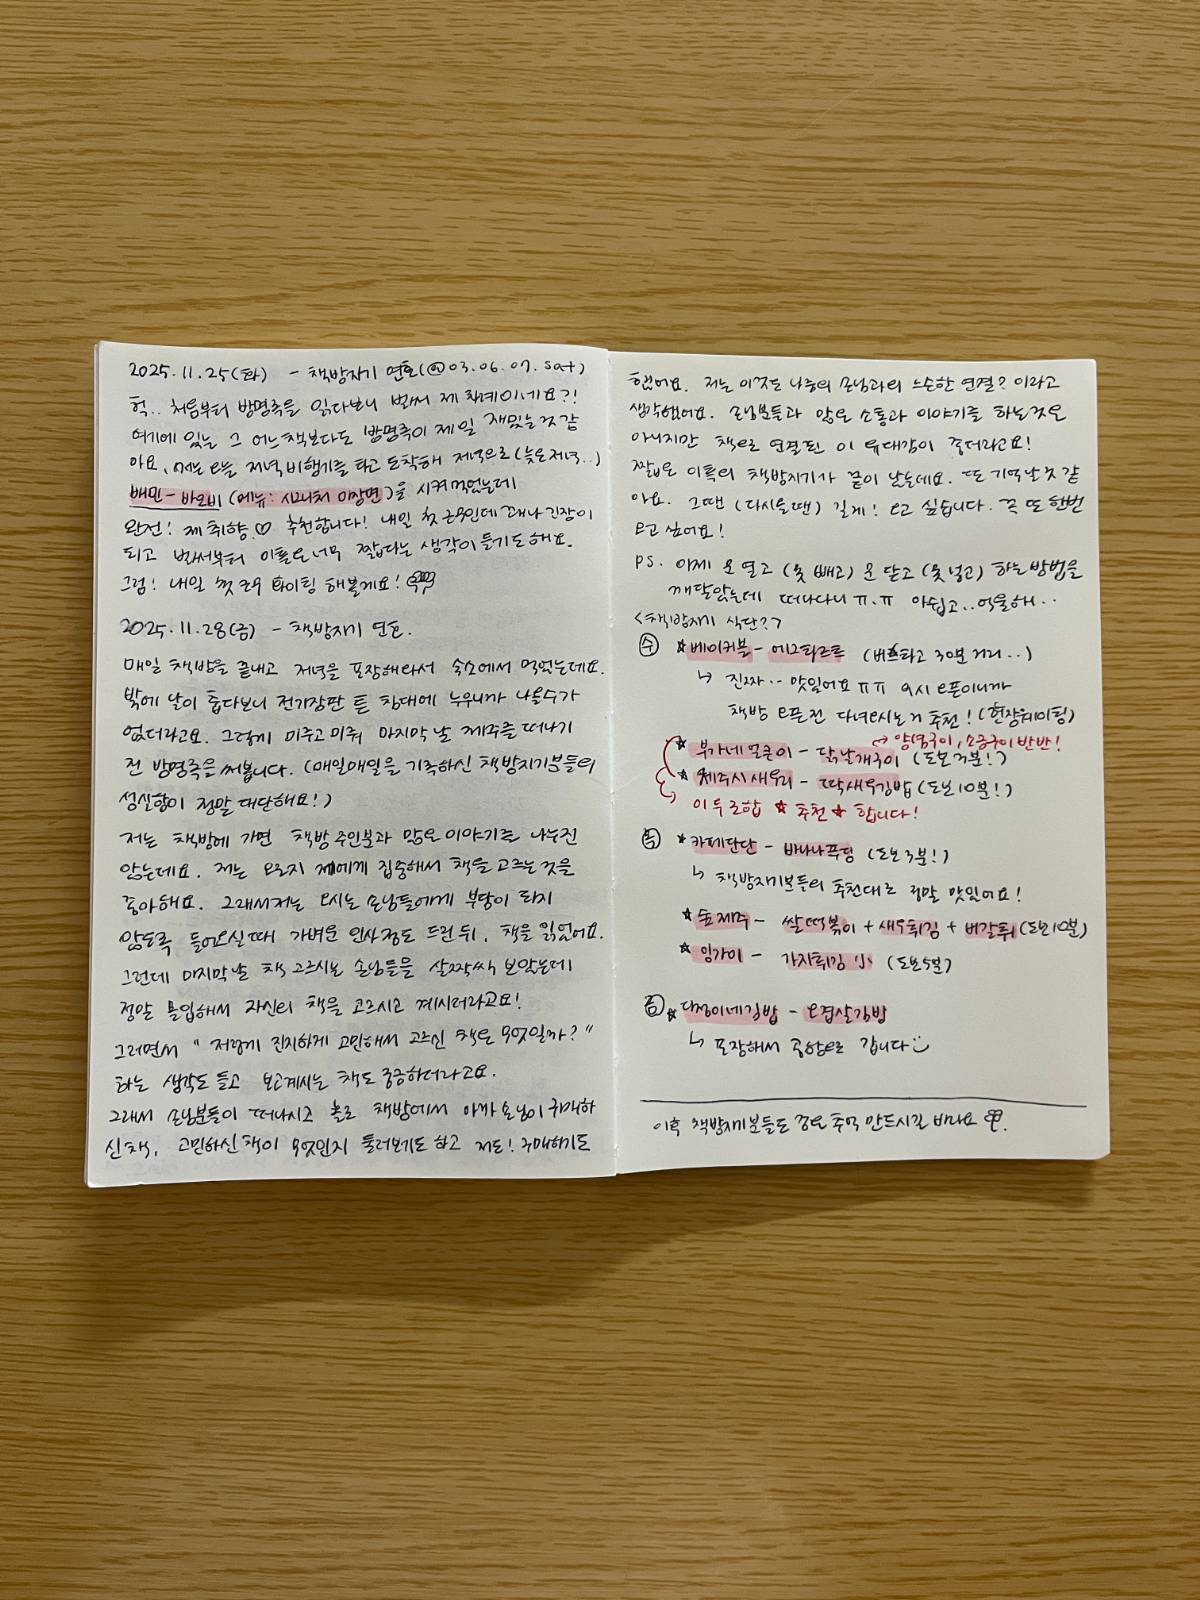 2025.11.25(화) - 책방지기 연호(@03.06.07.sat)
헉.. 처음부터 방명록을 읽다보니 벌써 제 차례이네요?!
여기에 있는 그 어느 책보다도 방명록이 제일 재밌는것 같
아요. 저는 오늘 저녁 비행기를 타고 도착해 저녁으로 (늦은저녁..)
배민 - 바로비 (메뉴: 시그니처 이장면)을 시켜먹었는데
완전! 제 취향♡ 추천합니다! 내일 첫 근무인데 꽤나 긴장이
되고 벌써부터 이틀은 너무 짧다는 생각이 들기도 해요.
그럼! 내일 첫 근무 화이팅 해볼게요!
2025.11.28(금) - 책방지기 연호.
매일 책방을 끝내고 저녁을 포장해와서 숙소에서 먹었는데요.
밖에 날이 춥다보니 전기장판 튼 침대에 누우니까 나올수가
없더라고요. 그렇게 미루고 미뤄 마지막 날 제주를 떠나기
전 방명록을 써봅니다. (매일매일을 기록하신 책방지기분들의
성실함이 정말 대단해요!)
저는 책방에 가면 책방 주인분과 많은 이야기를 나누진
않는데요. 저는 오로지 저에게 집중해서 책을 고르는 것을
좋아해요. 그래서 저는 오시는 손님들에게 부담이 되지
않도록 들어오실 때 가벼운 인사정도 드린 뒤, 책을 읽었어요.
그런데 마지막날 책 고르시는 손님들을 살짝씩 보았는데
정말 몰입해서 자신의 책을 고르시고 계시더라고요!
그러면서 " 저렇게 진지하게 고민해서 고르신 책은 무엇일까? "
하는 생각도 들고 보고계시는 책도 궁금하더라고요.
그래서 손님분들이 떠나시고 홀로 책방에서 아까 손님이 구매하
신 책, 고민하신 책이 무엇인지 둘러보기도 하고 저도! 구매하기도
했어요. 저는 이것은 나름의 손님과의 느슨한 연결? 이라고
생각했어요. 손님분들과 많은 소통과 이야기를 하는것은
아니지만 책으로 연결된 이 유대감이 좋더라고요!
짧은 이틀의 책방지기가 끝이 났는데요. 또 기억날 것 같
아요. 그땐 (다시 올 땐) 길게! 오고 싶습니다. 꼭 또 한번
오고 싶어요!
PS. 이제 문 열고 (못 빼고) 문 닫고 (못 넣고) 하는 방법을
깨달았는데 떠나다니 ㅠ.ㅠ 아쉽고.. 억울해..
<책방지기 식단??>
수 ☆베이커블 - 에그타르트 (버스타고 30분 거리..)
↳ 진짜.. 맛있어요 ㅠㅠ 9시 오픈이니까
책방 오픈전 다녀오시는거 추천! (현장웨이팅)
☆부가네 얼큰이 - 닭날개구이 (도보 7분!)
→ 양념구이, 소금구이 반반!
☆제주시새우리 - 딱새우김밥 (도보 10분!)
→ 이 두 조합 ☆추천☆ 합니다!
목 ☆카페단단 - 바나나푸딩 (도보 3분!)
↳ 책방지기분들의 추천대로 정말 맛있어요!
☆숨제주 - 쌀떡볶이 + 새우튀김 + 버갈튀 (도보 10분)
☆잉가이 - 가지튀김 小 (도보 5분)
금 ☆다정이네김밥 - 오겹살김밥
↳ 포장해서 공항으로 갑니다
이후 책방지기분들도 좋은 추억 만드시길 바라요